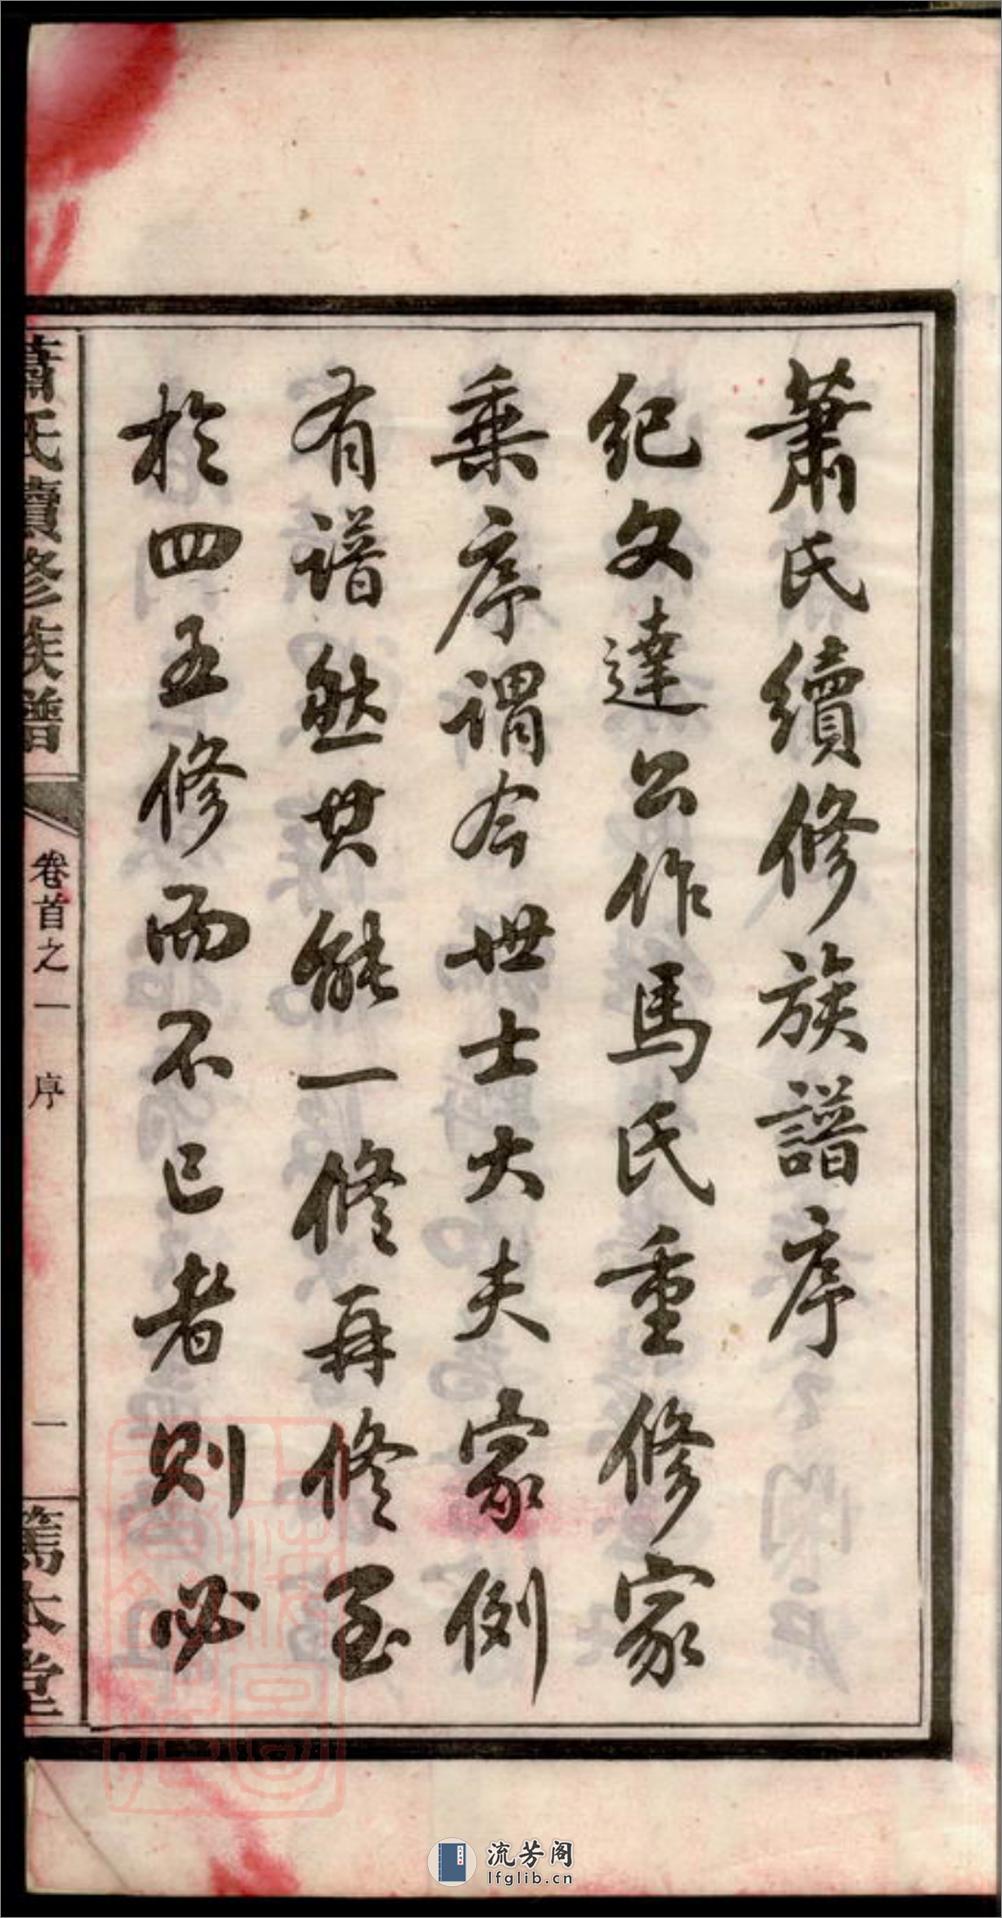 蕭氏續修族譜序
紀文達公作馬氏重修家
乘序謂今世士大夫家例
有譜然其能一修再修至
於四五修而不已者則必
蕭氏續修族譜
卷首之一 序
一
篤本堂
流芳阁
lfglib.cn